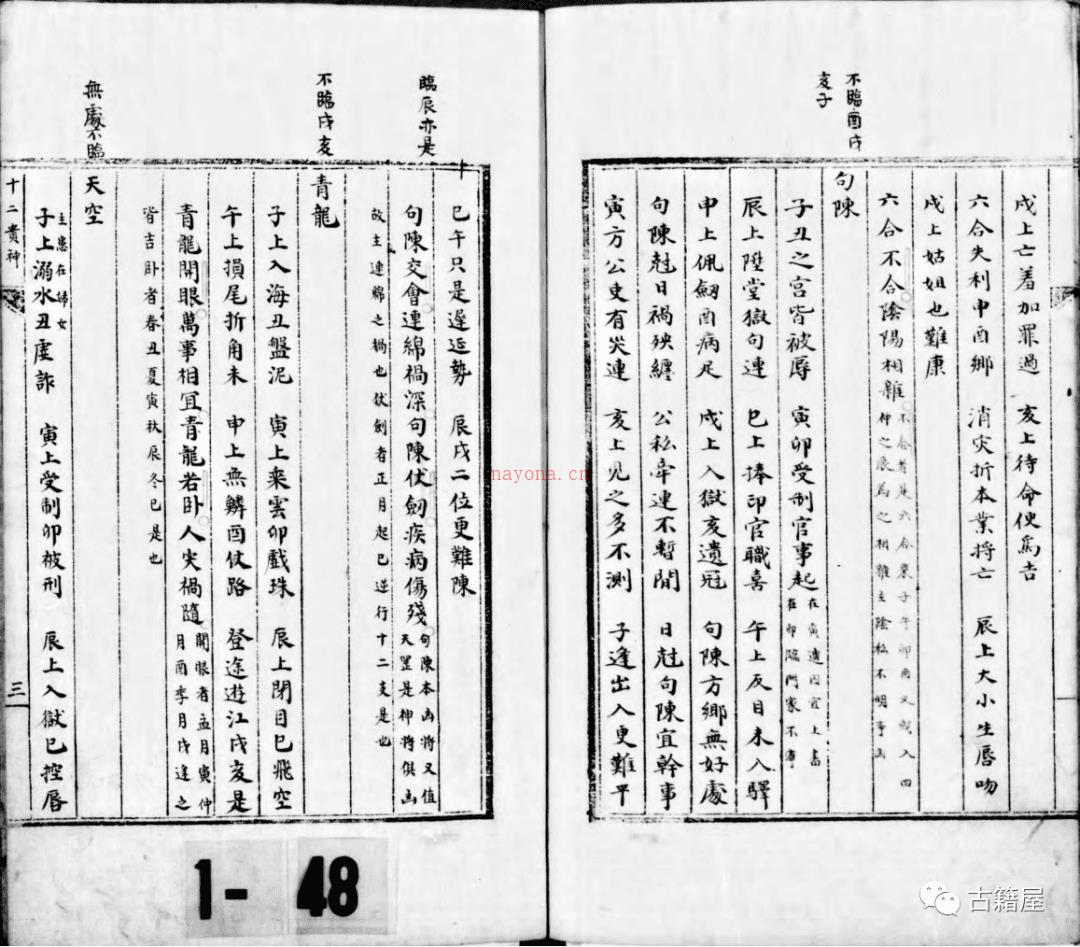 不臨酉戌
亥子
戌上亡羞加罪過　亥上待命便為吉
六合失利申酉鄉　消灾折本業將亡　辰上大小生唇吻
戌上姑姐也難康
六合不合陰陽相雜
不合者是六合乘子午卯酉又或入四
仲之辰為之相雜主陰私不明事
句陳
子丑之宮皆被辱　寅卯受制官事起
在寅遭囚宜上書
在卯臨門家不
辰上陞堂獄句連　巳上捧印官職喜　午上反目未入驛
申上佩劒酉病足　戌上入獄亥遺冠　句陳方鄉無好處
句陳尅日禍殃纏　公私牽連不暫閒　日尅句陳宜幹事
寅方公吏有灾連　亥上見之多不測　子逢出入更難平
臨辰亦是
巳午只是遲延勢　辰戌二位更難陳
句陳交會連綿禍深句陳伏劒疾病傷殘
句陳本凶將又值
天罡是神將俱凶
故主連綿之禍也伏劍者正月起巳逆行十二支是也
不臨戌亥
青龍
子上入海丑盤泥　寅上乘雲卯戲珠　辰上閉目巳飛空
午上損尾折角未　申上無鱗酉仗路　登途遊江戌亥是
青龍開眼萬事相宜青龍若卧人灾禍隨
開眼者孟月寅仲
月酉季月戌逢之
皆吉卧者春丑夏寅秋辰冬巳是也
無處不臨
天空
主患在婦女
子上溺水丑虛詐　寅上受制卯被刑　辰上入獄巳控唇
十二貴神
三
nayona.cn
1- 48
古籍屋